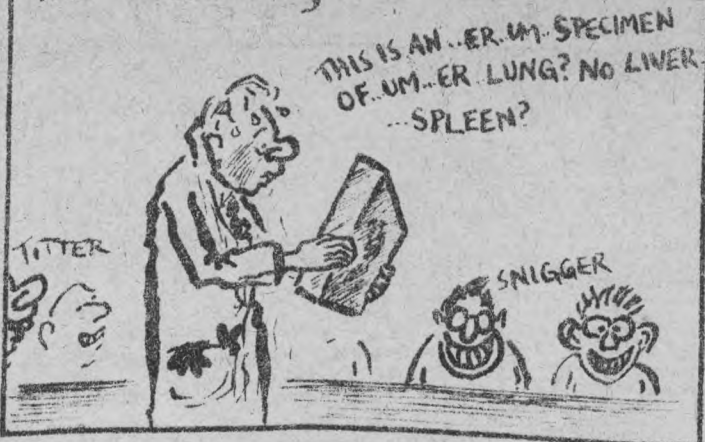 THIS IS AN..ER.UM..SPECIMEN
OF..UM..ER LUNG? NO LIVER
...SPLEEN?
TITTER
SNIGGER